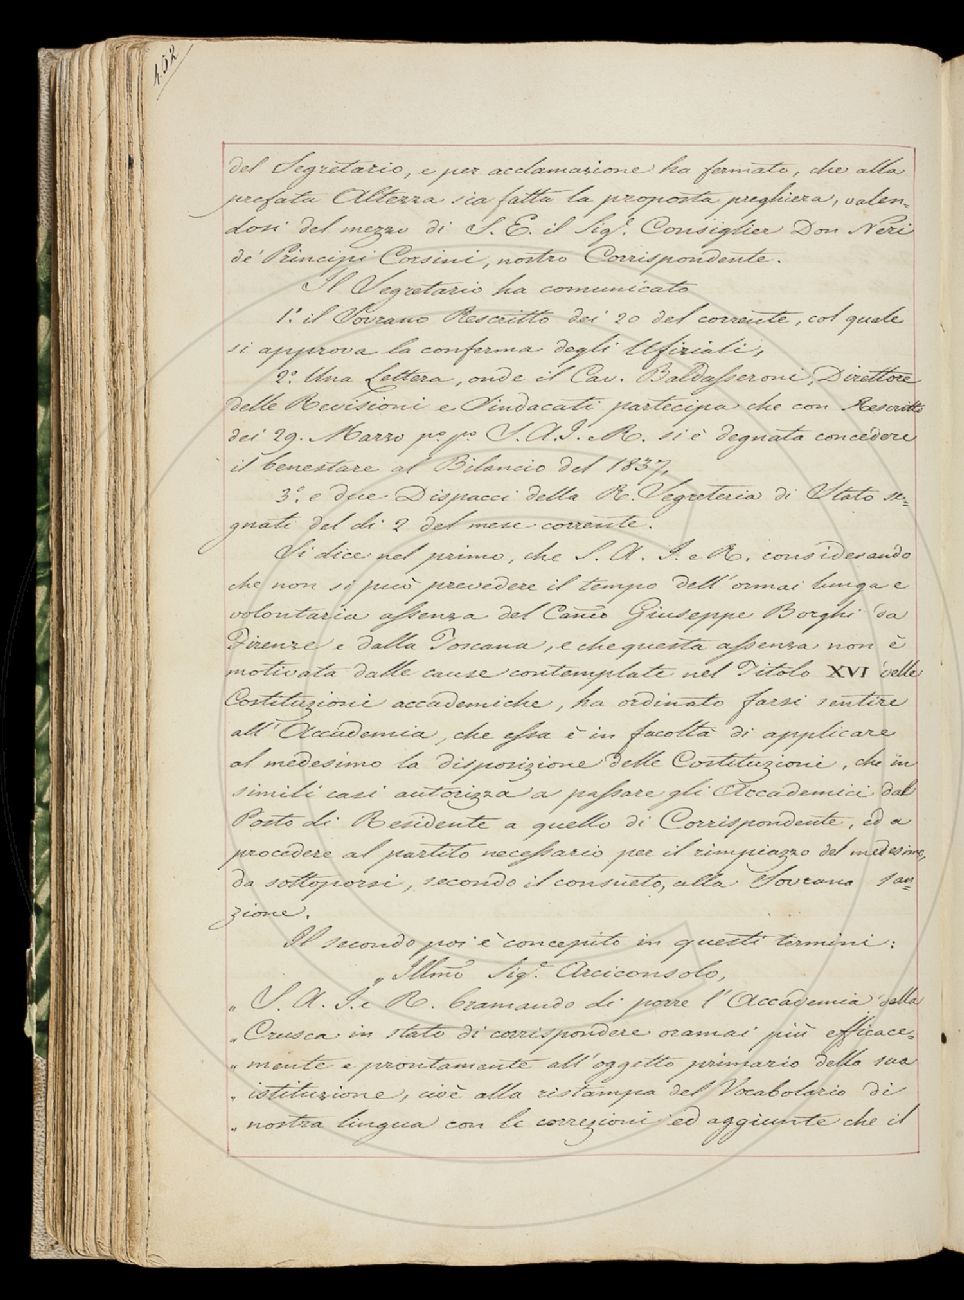 452
del Segretario, e per acclamazione ha fermato, che alla
prefata Altezza sia fatta la proposta preghiera, valen=
dosi del mezzo di S. E. il Sig.r Consiglier Don Neri
de' Principi Corsini, nostro Corrispondente.
Il Segretario ha comunicato
1.o il Sovrano Rescritto dei 20 del corrente, col quale
si approva la conferma degli Ufiziali,
2.o Una Lettera, onde il Cav. Baldasseroni, Direttore
delle Revisioni e Sindacati partecipa che con Rescritto
dei 29. Marzo p.o p.o S. A. I. e R. si è degnata concedere
il benestare al Bilancio del 1837,
3.o e due Dispacci della R. Segreteria di Stato se=
gnati del dì 2 del mese corrente.
Si dice nel primo, che S. A. I. e R. considerando
che non si può prevedere il tempo dell'ormai lunga e
volontaria assenza del Can.co Giuseppe Borghi da
Firenze e dalla Toscana, e che questa assenza non è
motivata dalle cause contemplate nel Titolo XVI delle
Costituzioni accademiche, ha ordinato farsi sentire
all'Accademia, che essa è in facoltà di applicare
al medesimo la disposizione delle Costituzioni, che in
simili casi autorizza a passare gli Accademici dal
Posto di Residente a quello di Corrispondente, ed a
procedere al partito necessario per il rimpiazzo del medesimo,
da sottoporsi, secondo il consueto, alla Sovrana san=
zione.
Il secondo poi è concepito in questi termini:
„ Illmo Sig.r Arciconsolo,
„ S. A. I. e R. bramando di porre l'Accademia della
„ Crusca in stato di corrispondere oramai più efficace=
„ mente e prontamente all'oggetto primario della sua
„ istituzione, cioè alla ristampa del Vocabolario di
„ nostra lingua con le correzioni ed aggiunte che il